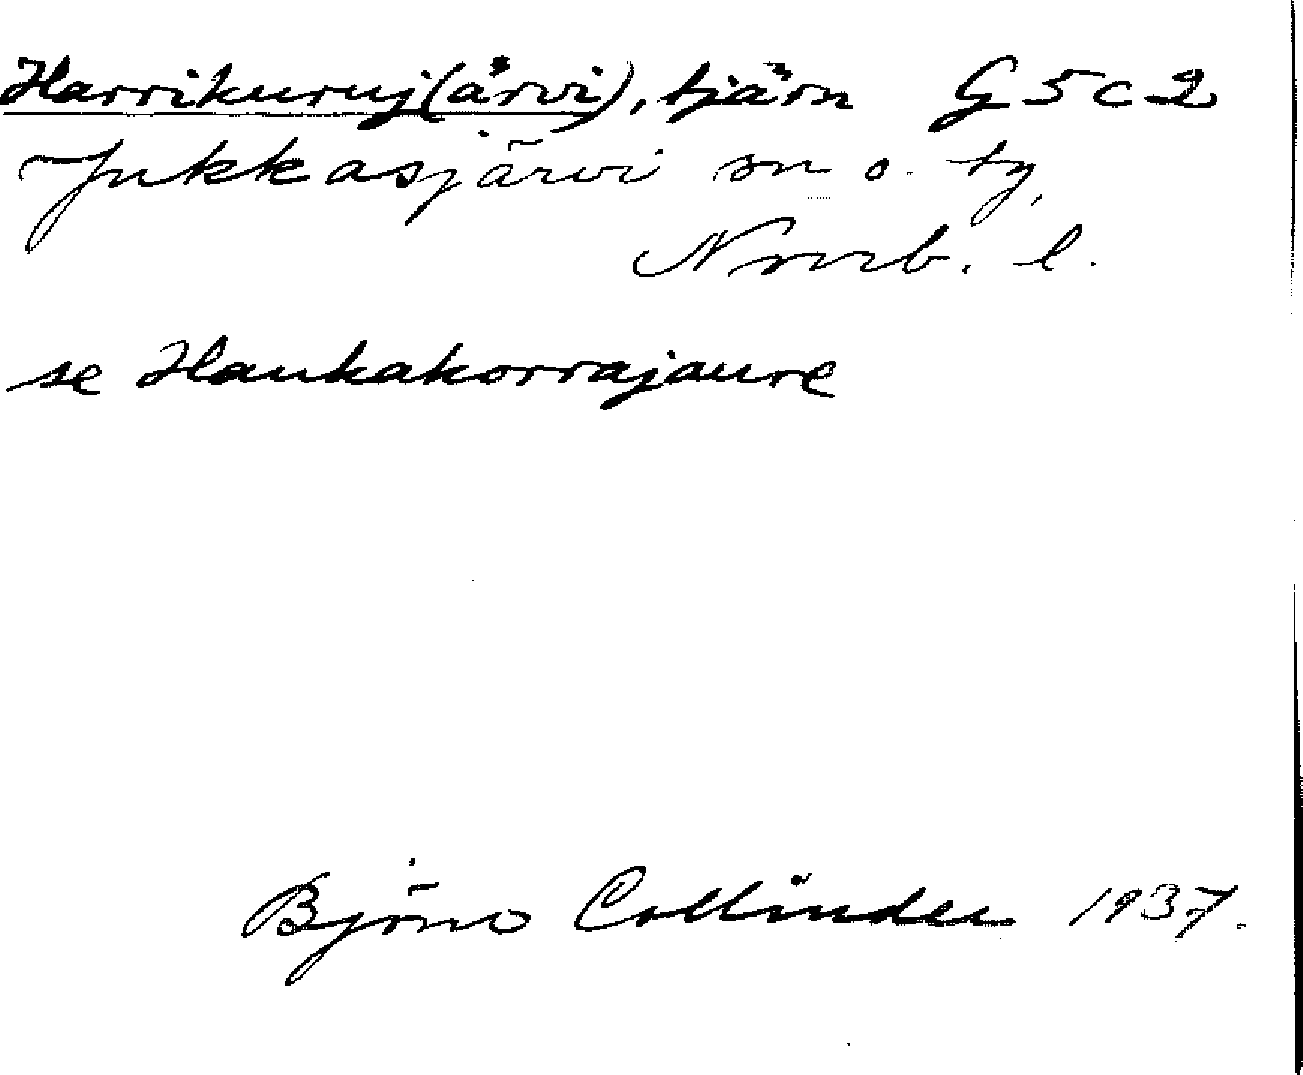 Harrikuruj(ärvi), tjärn G5c2
Jukkasjärvi sn o. tg,
Norrb. l.
se Haukakorrajaure
Björn Collinder 1937.